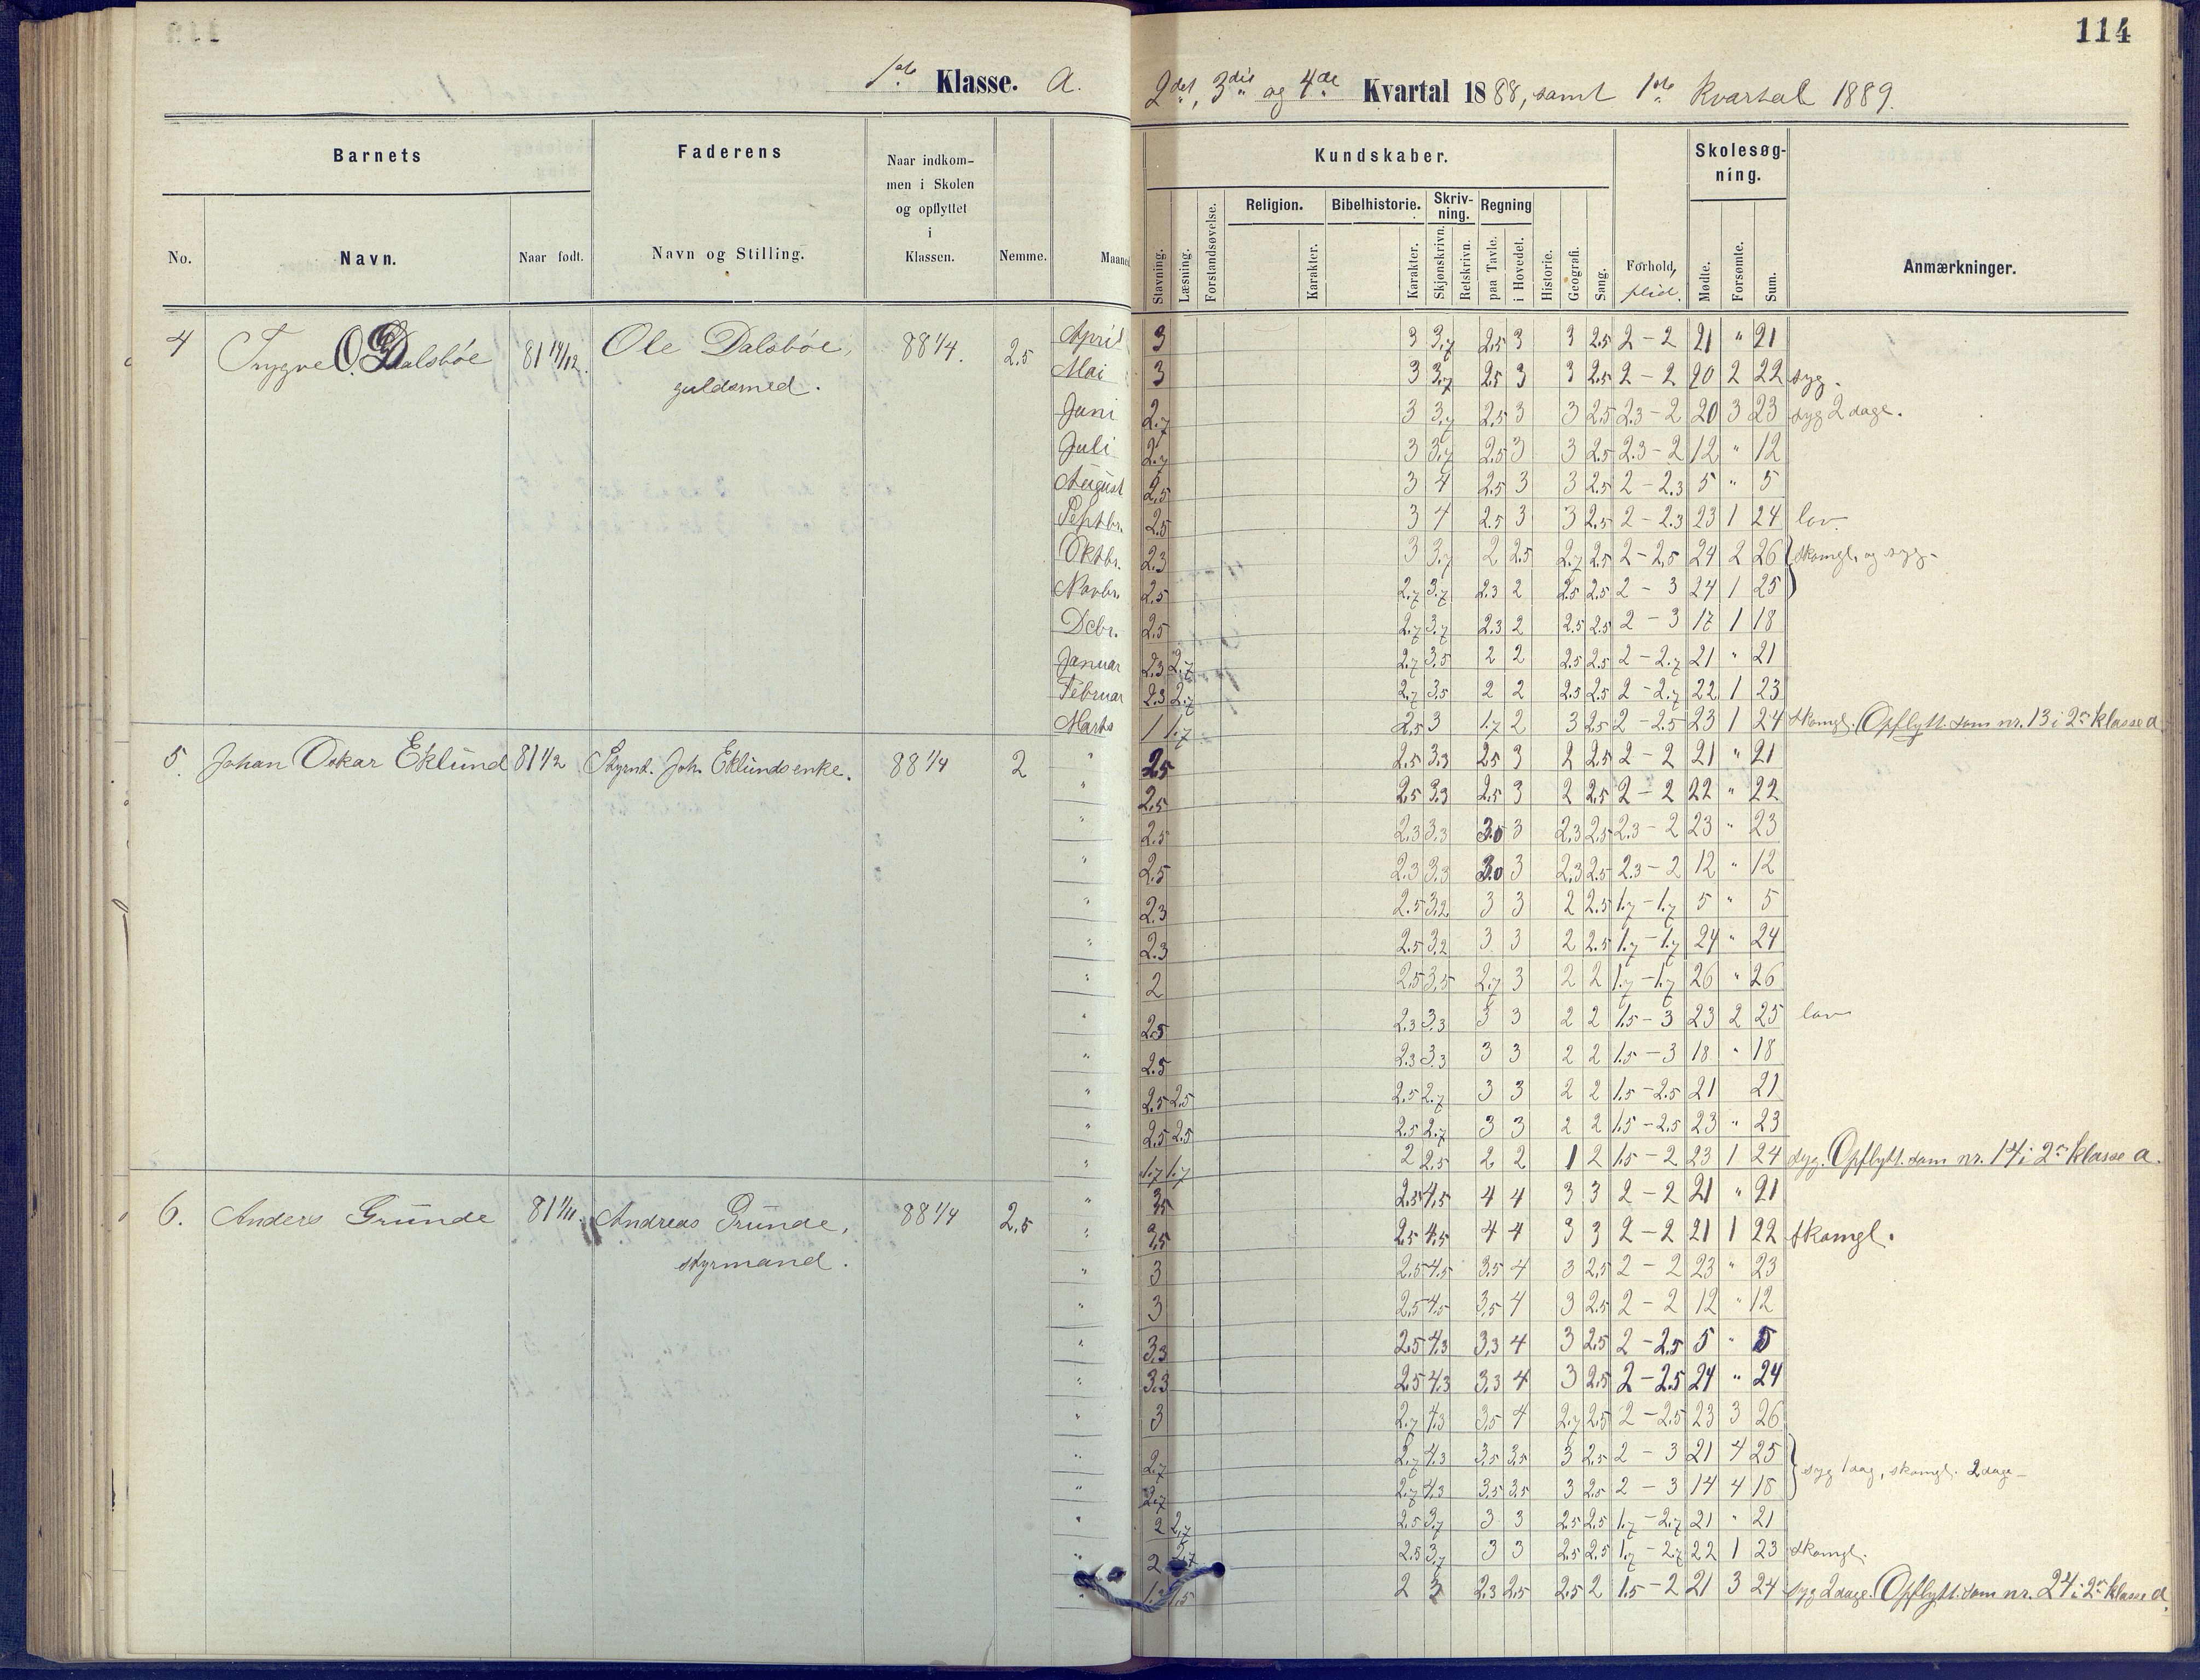 114
1ste Klasse. a.
2det, 3die og 4de Kvartal 1888, samt 1ste Kvartal 1889.
Barnets
Faderens
Naar indkom-
men i Skolen
og opflyttet
i
Klassen.
No.
Navn.
Naar født.
Navn og Stilling.
Nemme.
Maaned
Kundskaber.
Skolesøg-
ning.
Stavning.
Læsning.
Forstandsøvelse.
Religion.
Karakter.
Bibelhistorie.
Karakter.
Skriv-
ning.
Skjønskrivn.
Retskrivn.
Regning
paa Tavle.
i Hovedet.
Historie.
Geografi.
Sang.
Forhold,
flid.
Mødte.
Forsømte.
Sum.
Anmærkninger.
4 Trygve O. Dalsbøe 81 14/12. Ole Dalsbøe, 88 1/4. 2,5
guldsmed.
April 3 3 3,7 2,5 3 3 2,5 2 - 2 21 " 21
Mai 3 3 3,7 2,5 3 3 2,5 2 - 2 20 2 22 syg.
Juni 2,7 3 3,7 2,5 3 3 2,5 2,3 - 2 20 3 23 syg 2 dage.
Juli 2,7 3 3,7 2,5 3 3 2,5 2,3 - 2 12 " 12
August 2,5 3 4 2,5 3 3 2,5 2 - 2,3 5 " 5
Septbr. 2,5 3 4 2,5 3 3 2,5 2 - 2,3 23 1 24 lov.
Oktbr. 2,3 3 3,7 2 2,5 2,7 2,5 2 - 2,5 24 2 26 skomgl. og syg-
Novbr. 2,5 2,7 3,7 2,3 2 2,5 2,5 2 - 3 24 1 25
Dcbr. 2,5 2,7 3,7 2,3 2 2,5 2,5 2 - 3 17 1 18
Januar 2,3 2,7 2,7 3,5 2 2 2,5 2,5 2 - 2,7 21 " 21
Februar 2,3 2,7 2,7 3,5 2 2 2,5 2,5 2 - 2,7 22 1 23
Marts 1 1,7 2,5 3 1,7 2 3 2,5 2 - 2,5 23 1 24 skomgl. Opflytt. som nr. 13 i 2en klasse a
5. Johan Oskar Eklund 81 1/2 Styrmd. Joh. Eklunds enke. 88 1/4 2
" 2,5 2,5 3,3 2,5 3 2 2,5 2 - 2 21 " 21
" 2,5 2,5 3,3 2,5 3 2 2,5 2 - 2 22 " 22
" 2,5 2,3 3,3 3,0 3 2,3 2,5 2,3 - 2 23 " 23
" 2,5 2,3 3,3 3,0 3 2,3 2,5 2,3 - 2 12 " 12
" 2,3 2,5 3,2 3 3 2 2,5 1,7 - 1,7 5 " 5
" 2,3 2,5 3,2 3 3 2 2,5 1,7 - 1,7 24 " 24
" 2 2,5 3,5 2,7 3 2 2 1,7 - 1,7 26 " 26
" 2,5 2,3 3,3 3 3 2 2 1,5 - 3 23 2 25 lov
" 2,5 2,3 3,3 3 3 2 2 1,5 - 3 18 " 18
" 2,5 2,5 2,5 2,7 3 3 2 2 1,5 - 2,5 21 21
" 2,5 2,5 2,5 2,7 3 3 2 2 1,5 - 2,5 23 " 23
" 1,7 1,7 2 2,5 2 2 1 2 1,5 - 2 23 1 24 syg. Opflytt. som nr. 14 i 2en klasse a.
6. Anders Grunde 81 1/11. Andreas Grunde, 88 1/4 2,5
styrmand.
" 3,5 2,5 4,5 4 4 3 3 2 - 2 21 " 21
" 3,5 2,5 4,5 4 4 3 3 2 - 2 21 1 22 skomgl.
" 3 2,5 4,5 3,5 4 3 2,5 2 - 2 23 " 23
" 3 2,5 4,5 3,5 4 3 2,5 2 - 2 12 " 12
" 3,3 2,5 4,3 3,3 4 3 2,5 2 - 2,5 5 " 5
" 3,3 2,5 4,3 3,3 4 3 2,5 2 - 2,5 24 " 24
" 3 2,7 4,3 3,5 4 2,7 2,5 2 - 2,5 23 3 26
" 2,7 2,7 4,3 3,5 3,5 3 2,5 2 - 3 21 4 25
syg 1 dag, skomgl. 2 dage-
" 2,7 2,7 4,3 3,5 3,5 3 2,5 2 - 3 14 4 18
" 2 2,7 2,5 3,7 3 3 2,5 2,5 1,7 - 2,7 21 " 21
" 2 2,7 2,5 3,7 3 3 2,5 2,5 1,7 - 2,7 22 1 23 skomgl.
" 1,5 2 3 2,3 2,5 2,5 2 1,5 - 2 21 3 24 syg 2 dage. Opflytt. som nr. 24 i 2en klasse a.